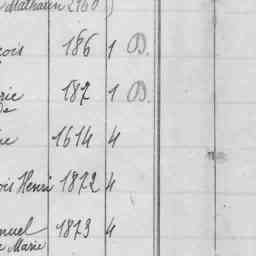 Mathurin 2160
çois 186 1 D.
rie 187 1 D.
de
ie 1614 4
ois Henri 1872 4
nuel 1873 4
e Marie